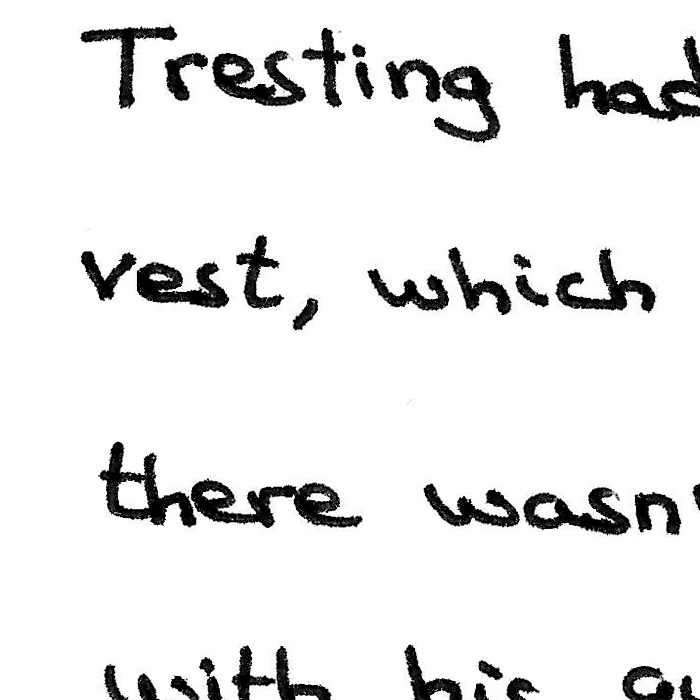 Tresting had
vest, which
there wasn'
with his